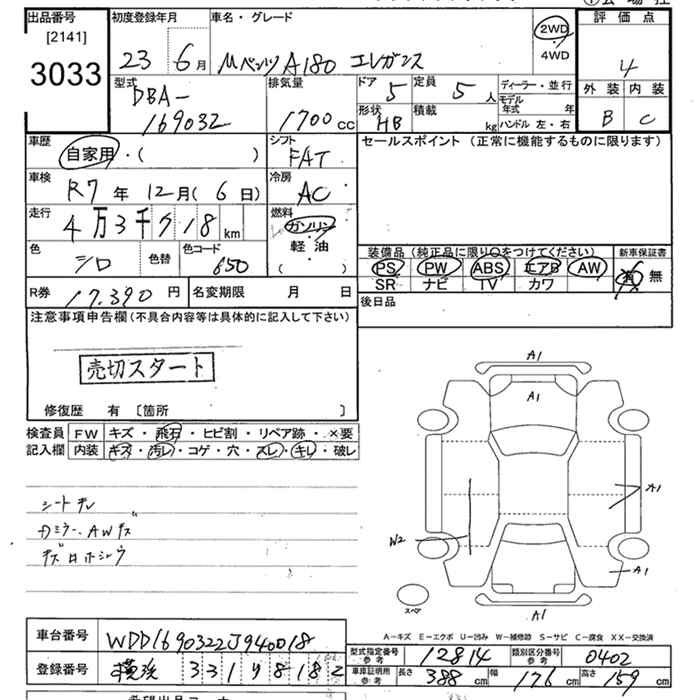 出品番号
[2141]
3033
初度登録年月
23 6月
車名・グレード
Mベンツ A180 エレガンス
2WD
4WD
評価点
4
外装 内装
B C
型式
DBA-
169032
排気量
1700cc
ドア 5
定員 5人
形状 HB
積載 kg
ディーラー・並行
モデル年式 年
ハンドル 左・右
車歴
自家用・( )
シフト
FAT
セールスポイント (正常に機能するものに限ります)
車検
R7年 12月(6日)
冷房
AC
走行
4万3千 18km
燃料
ガソリン
軽油
( )
色
シロ
色替
色コード
650
装備品 (純正品に限り○をつけてください)
PS PW ABS エアB AW
SR ナビ TV カワ
新車保証書
有 無
R券 17,390円
名変期限 月 日
後日品
注意事項申告欄(不具合内容等は具体的に記入して下さい)
売切スタート
修復歴 有 [箇所 ]
検査員記入欄
FW キズ・飛石・ヒビ割・リペア跡・×要
内装 キズ・汚レ・コゲ・穴・スレ・キレ・破レ
シートキレ
Rミラー、AWキズ
キズ有ホシュウ
A1
A1
A1
W2
A1
スペア
A1
A-キズ E-エクボ U-凹み W-補修跡 S-サビ C-腐食 XX-交換済
車台番号 WDD1690322J940018
登録番号 横浜 331
型式指定番号 参考 12814
類別区分番号 参考 0402
車庫証明用 参考 長さ 388cm 幅 176cm 高さ 159cm